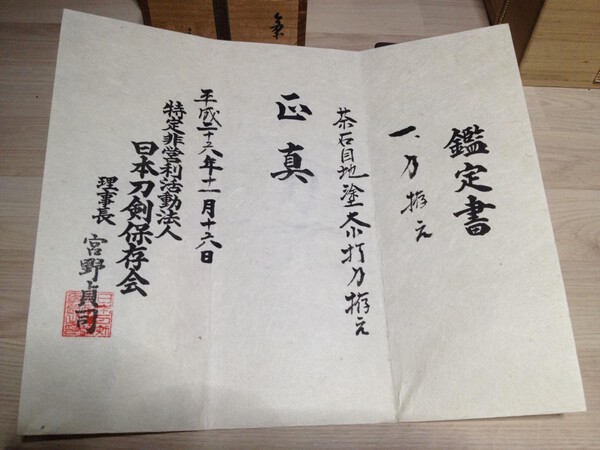 鑑定書
一、刀拵え
茶石目地塗大小打刀拵え
正真
平成二十六年十一月十六日
特定非営利活動法人
日本刀剣保存会
理事長 宮野貞司